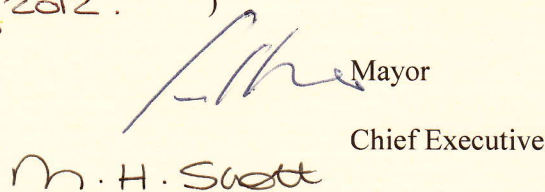 2012. )
Mayor
Chief Executive
M. H. Scott